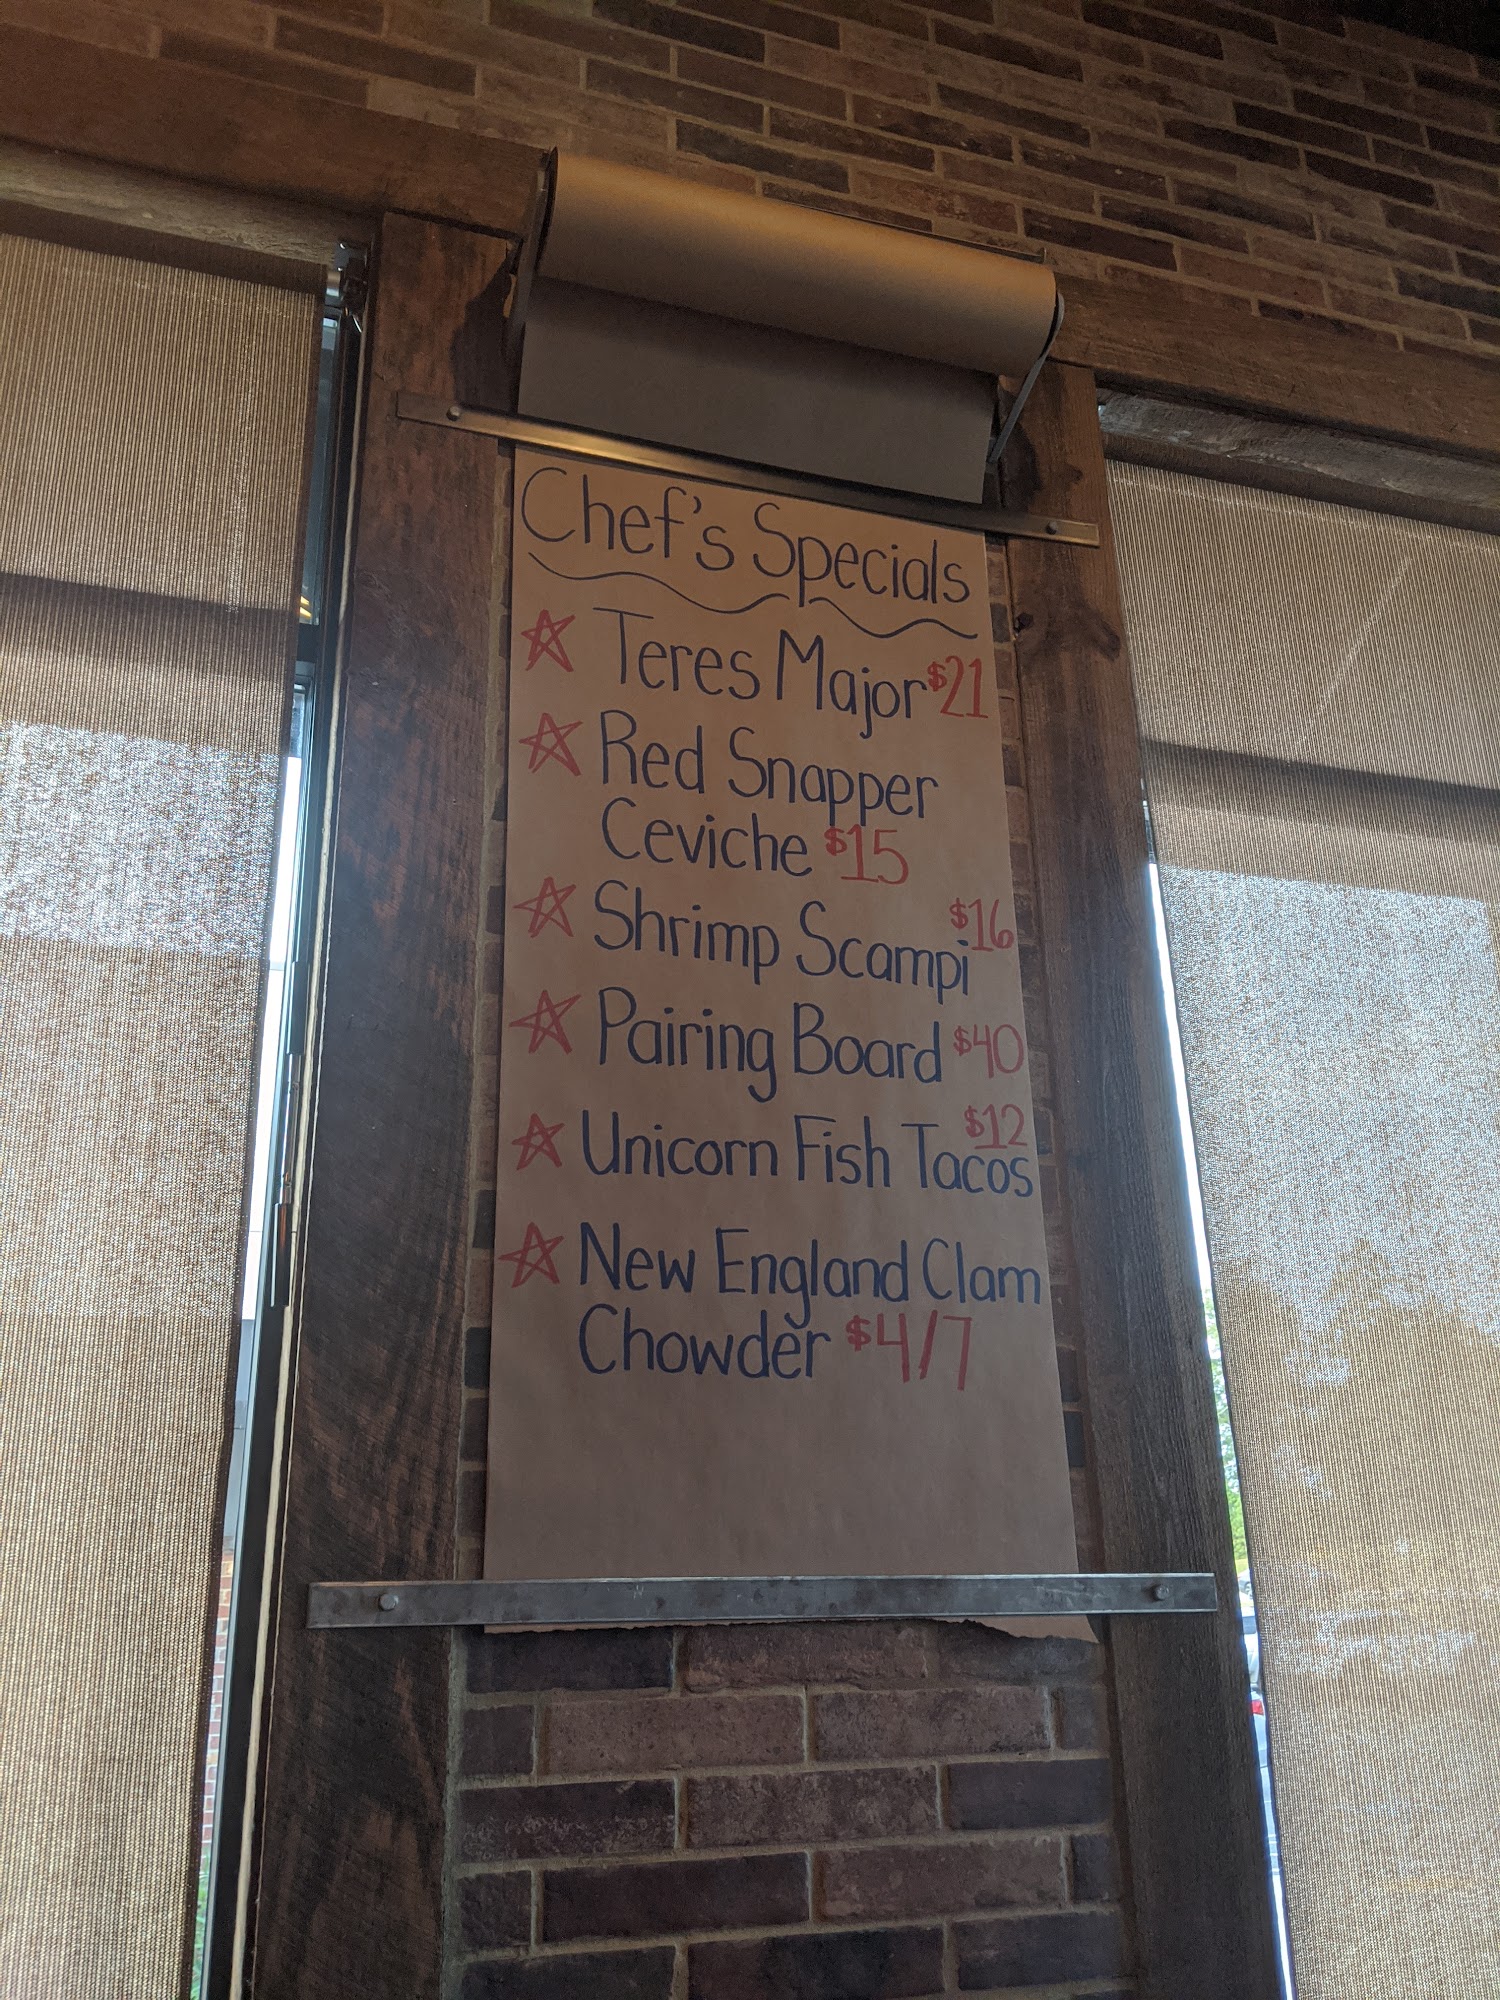 Chef's Specials
Teres Major $21
Red Snapper
Ceviche $15
Shrimp Scampi $16
Pairing Board $40
Unicorn Fish Tacos $12
New England Clam
Chowder $4/7